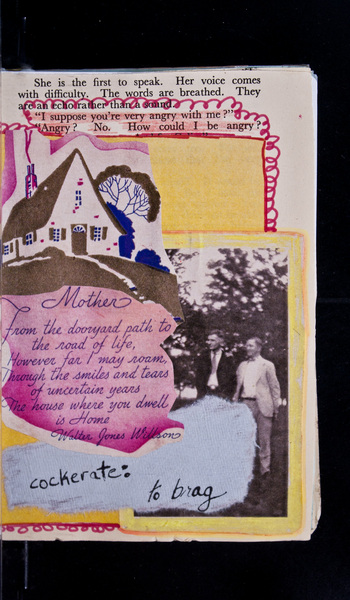 She is the first to speak. Her voice comes
with difficulty. The words are breathed. They
are an echo rather than a sound.
"I suppose you're very angry with me?"
"Angry? No. How could I be angry?
Mother
From the dooryard path to
the road of life,
However far I may roam,
Through the smiles and tears
of uncertain years
The house where you dwell
is Home
Walter Jones Willson
cockerate:
to brag